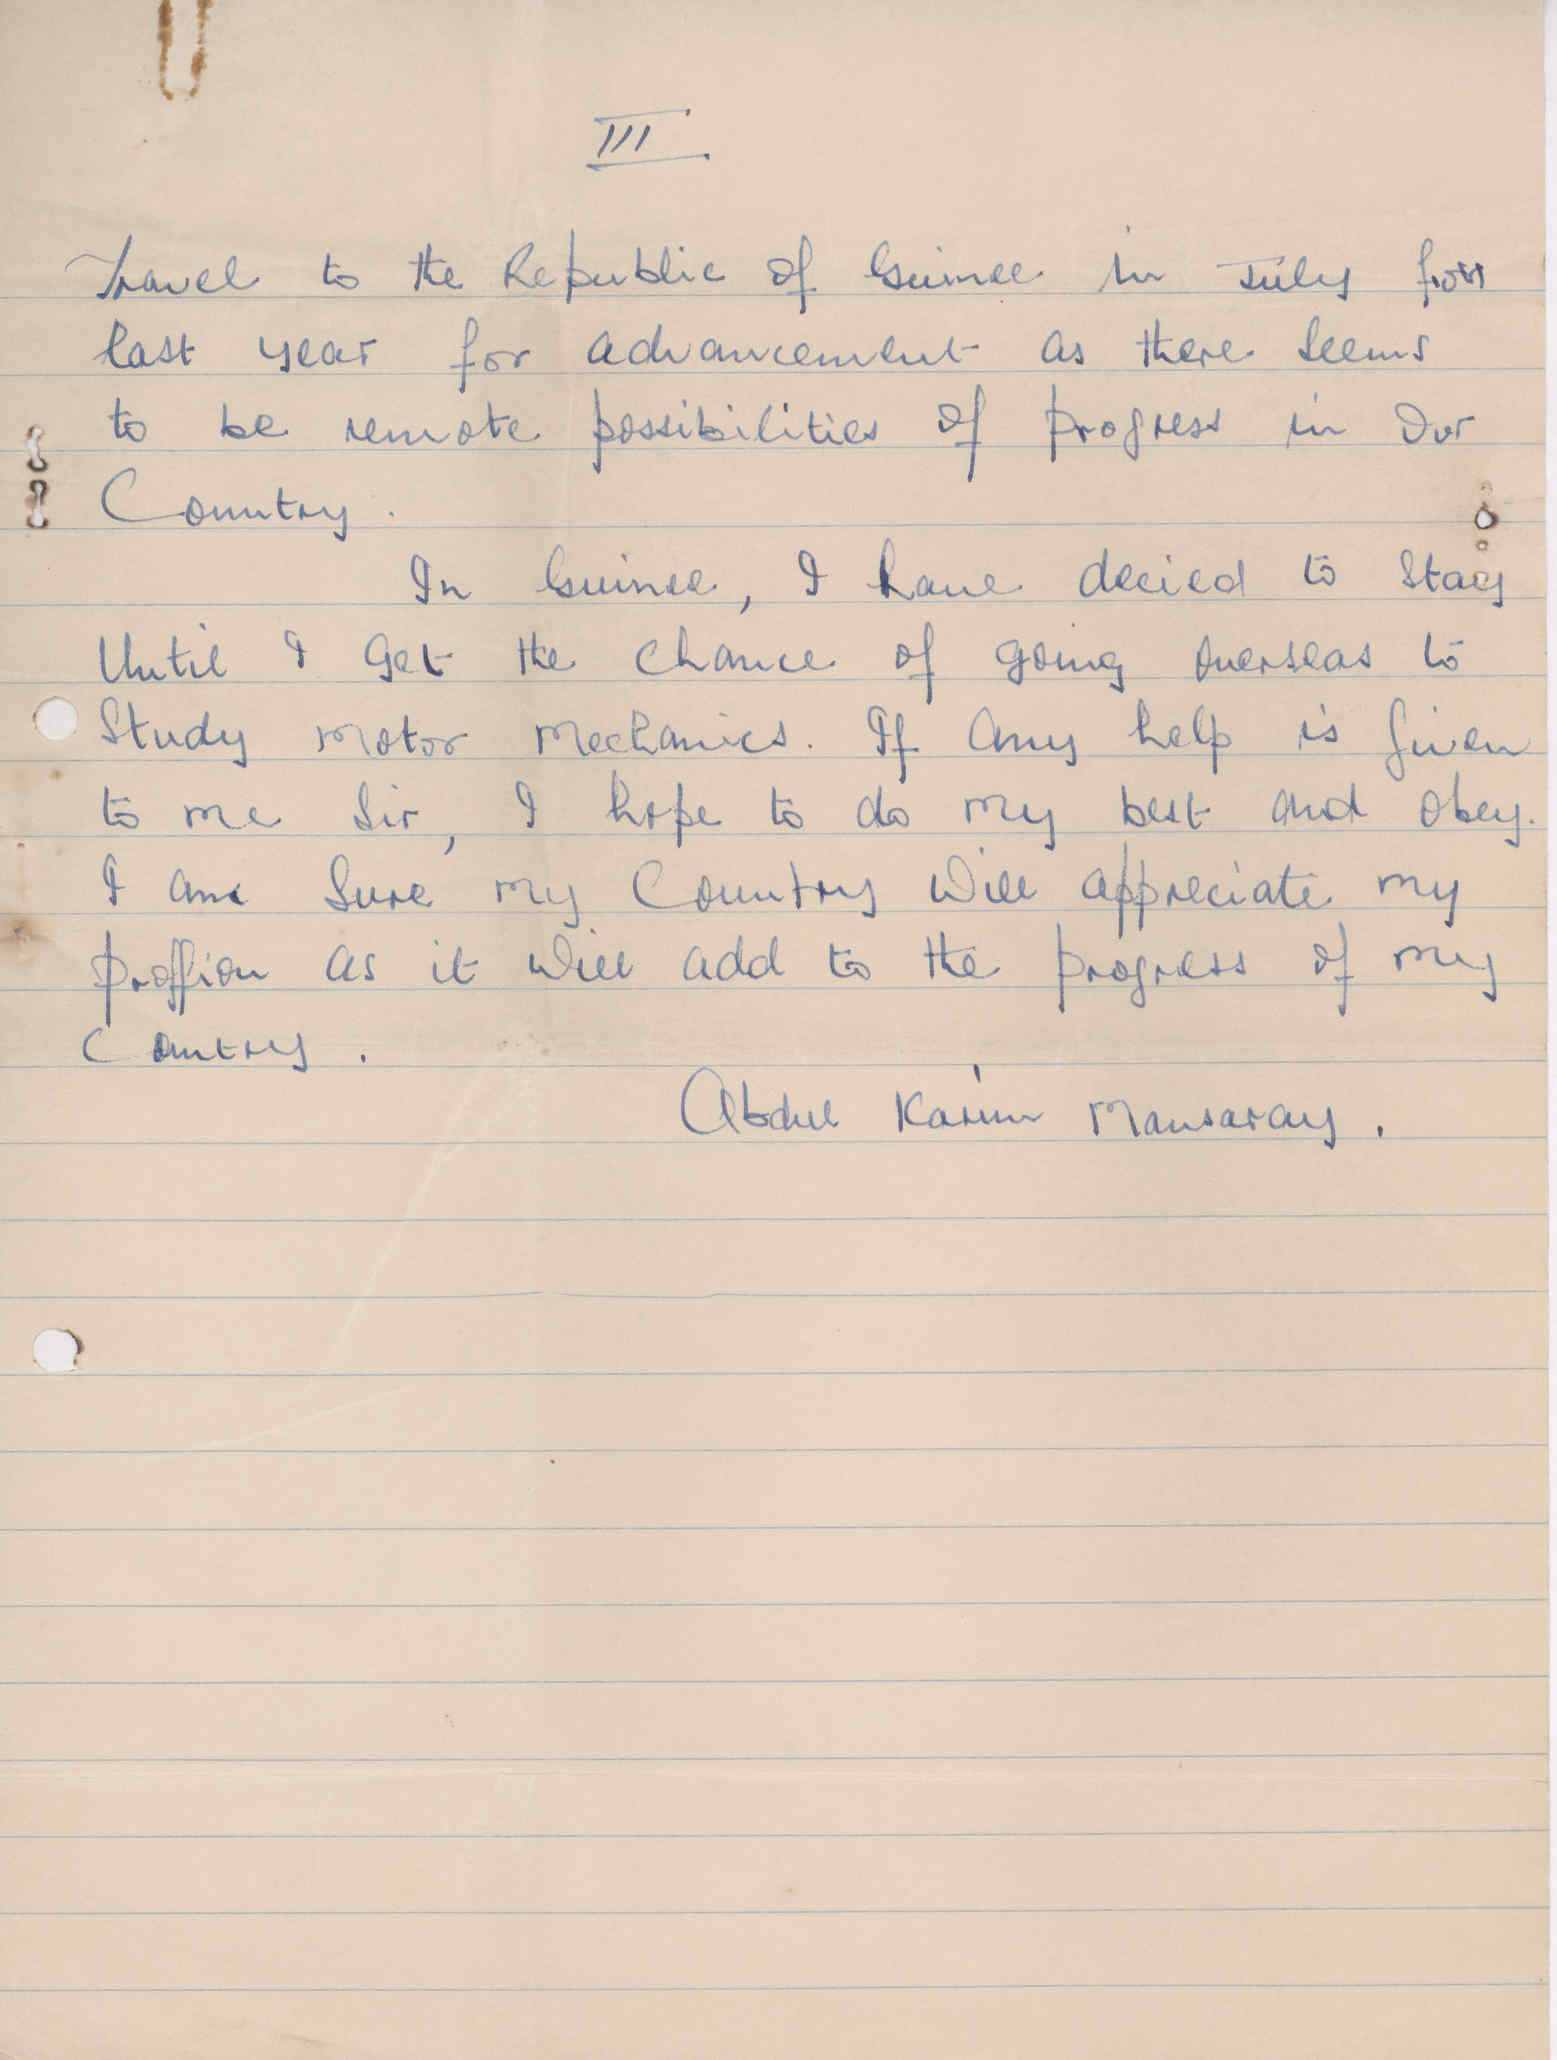 III
Travel to the Republic of Guinee in July from
last year for advancement as there seems
to be remote possibilities of progress in Our
Country.
In Guinee, I have decied to stay
Until I get the chance of going overseas to
Study motor mechanics. If any help is given
to me Sir, I hope to do my best and obey.
I am Sure my Country will appreciate my
proffion as it will add to the progress of my
Country.
Abdul Karim Mansaray.